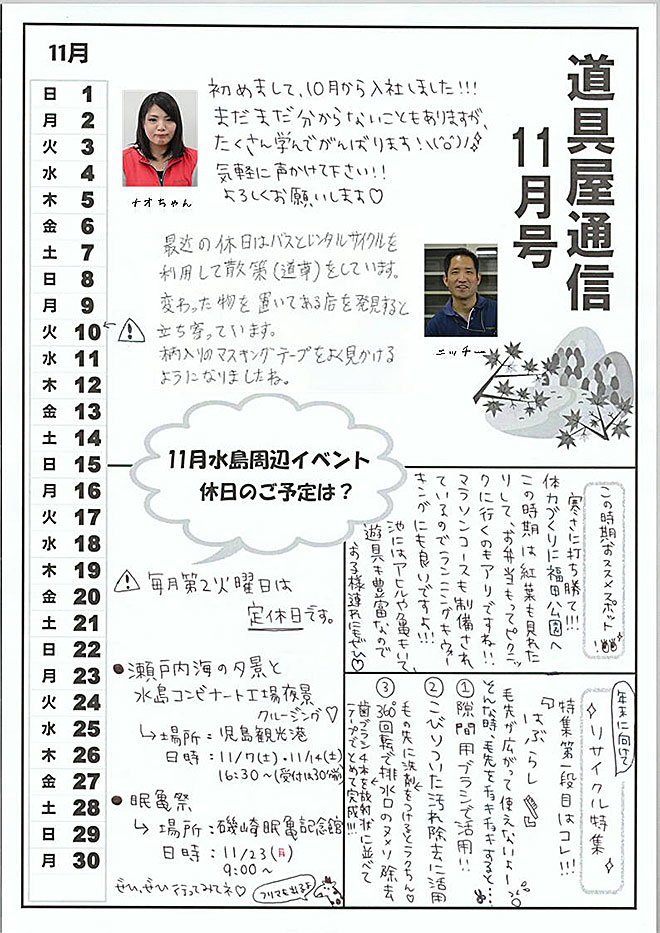 道具屋通信
11月号
11月
日 1
月 2
火 3
水 4
木 5
金 6
土 7
日 8
月 9
火 10
水 11
木 12
金 13
土 14
日 15
月 16
火 17
水 18
木 19
金 20
土 21
日 22
月 23
火 24
水 25
木 26
金 27
土 28
日 29
月 30
初めまして、10月から入社しました!!!
まだまだ分からないこともありますが、
たくさん学んでがんばります!
気軽に声かけて下さい!!
よろしくお願いします♡
ナオちゃん
最近の休日はバスとレンタルサイクルを
利用して散策(道草)をしています。
変わった物を置いてある店を発見すると
立ち寄っています。
柄入りのマスキングテープをよく見かける
ようになりましたね。
ニッチー
11月水島周辺イベント
休日のご予定は?
毎月第2火曜日は
定休日です。
●瀬戸内海の夕景と
水島コンビナート工場夜景
クルージング♡
↳場所:児島観光港
日時:11/7(土)・11/14(土)
16:30~(受付は30分前)
●眠亀祭
↳場所:磯崎眠亀記念館
日時:11/23(月)
9:00~
ぜひ、ぜひ行ってみてネ♡
フリマも出るよ
この時期おススメスポット
寒さに打ち勝て!!!
体力づくりに福田公園へ
この時期は紅葉も見れた
りして、お弁当もってピクニッ
クに行くのもアリですね!!
マラソンコースも制備され
ているのでランニングやウォー
キングにも良いですよ!!!
池にはアヒルや亀もいて、
遊具も豊富なので
お子様連れにもぜひ♡
年末に向けて
リサイクル特集
特集第一段目はコレ!!!
『はぶらし』
毛先が広がって使えないよー
そんな時、毛先をチョキチョキすると・・・
①隙間用ブラシで活用!!
②こびりついた汚れ除去に活用
毛の先に洗剤をつけるとラクちん♡
③360°回転で排水口のヌメリ除去
歯ブラシ4本を放射状に並べて
テープでとめて完成!!!